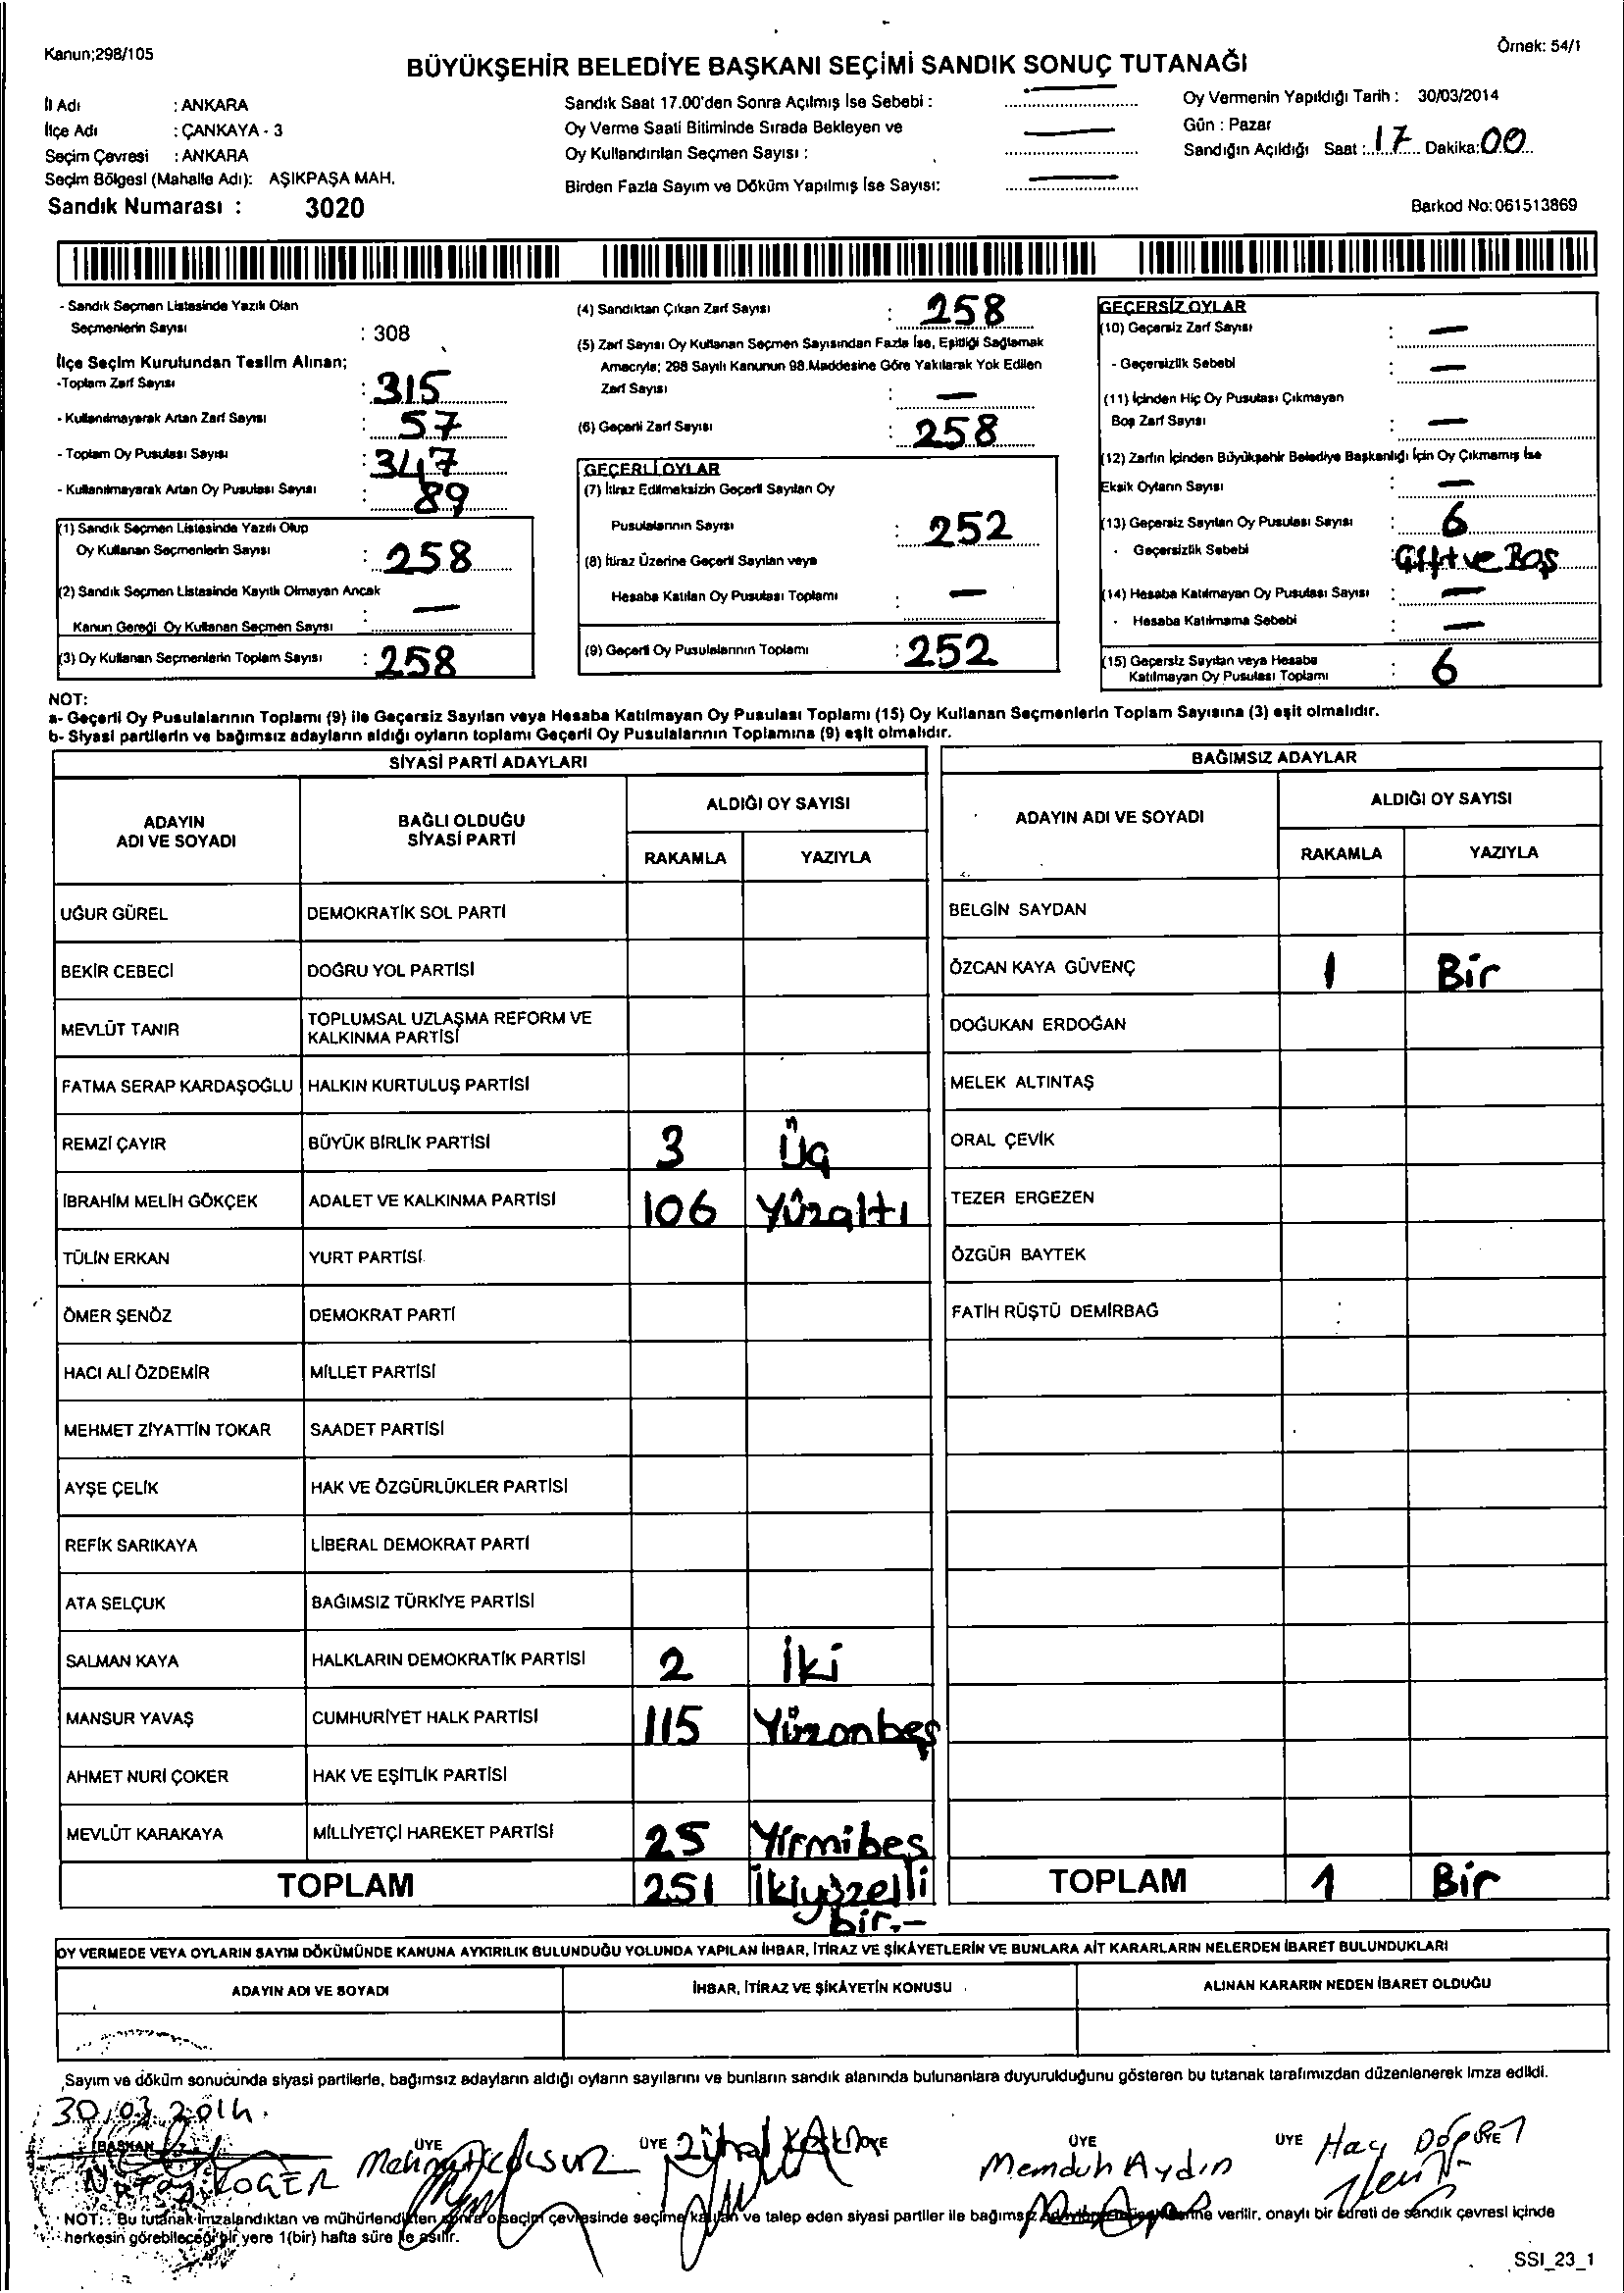 Kanun;298/105
Örnek: 54/1
BÜYÜKŞEHİR BELEDİYE BAŞKANI SEÇİMİ SANDIK SONUÇ TUTANAĞI
İl Adı : ANKARA
İlçe Adı : ÇANKAYA - 3
Seçim Çevresi : ANKARA
Seçim Bölgesi (Mahalle Adı): AŞIKPAŞA MAH.
Sandık Numarası : 3020
Sandık Saat 17.00'den Sonra Açılmış İse Sebebi : —
Oy Verme Saati Bitiminde Sırada Bekleyen ve
Oy Kullandırılan Seçmen Sayısı : —
Birden Fazla Sayım ve Döküm Yapılmış İse Sayısı: —
Oy Vermenin Yapıldığı Tarih : 30/03/2014
Gün : Pazar
Sandığın Açıldığı Saat : 17 Dakika: 00
Barkod No: 061513869
- Sandık Seçmen Listesinde Yazılı Olan
Seçmenlerin Sayısı : 308
İlçe Seçim Kurulundan Teslim Alınan;
-Toplam Zarf Sayısı : 315
- Kullanılmayarak Artan Zarf Sayısı : 57
- Toplam Oy Pusulası Sayısı : 347
- Kullanılmayarak Artan Oy Pusulası Sayısı : 89
(1) Sandık Seçmen Listesinde Yazılı Olup
Oy Kullanan Seçmenlerin Sayısı : 258
(2) Sandık Seçmen Listesinde Kayıtlı Olmayan Ancak
Kanun Gereği Oy Kullanan Seçmen Sayısı : —
(3) Oy Kullanan Seçmenlerin Toplam Sayısı : 258
(4) Sandıktan Çıkan Zarf Sayısı : 258
(5) Zarf Sayısı Oy Kullanan Seçmen Sayısından Fazla İse, Eşitliği Sağlamak
Amacıyla; 298 Sayılı Kanunun 98.Maddesine Göre Yakılarak Yok Edilen
Zarf Sayısı : —
(6) Geçerli Zarf Sayısı : 258
GEÇERLİ OYLAR
(7) İtiraz Edilmeksizin Geçerli Sayılan Oy
Pusulalarının Sayısı : 252
(8) İtiraz Üzerine Geçerli Sayılan veya
Hesaba Katılan Oy Pusulası Toplamı : —
(9) Geçerli Oy Pusulalarının Toplamı : 252
GEÇERSİZ OYLAR
(10) Geçersiz Zarf Sayısı : —
- Geçersizlik Sebebi : —
(11) İçinden Hiç Oy Pusulası Çıkmayan
Boş Zarf Sayısı : —
(12) Zarfın İçinden Büyükşehir Belediye Başkanlığı İçin Oy Çıkmamış İse
Eksik Oyların Sayısı : —
(13) Geçersiz Sayılan Oy Pusulası Sayısı : 6
- Geçersizlik Sebebi : Çift ve Boş
(14) Hesaba Katılmayan Oy Pusulası Sayısı : —
- Hesaba Katılmama Sebebi : —
(15) Geçersiz Sayılan veya Hesaba
Katılmayan Oy Pusulası Toplamı : 6
NOT:
a- Geçerli Oy Pusulalarının Toplamı (9) ile Geçersiz Sayılan veya Hesaba Katılmayan Oy Pusulası Toplamı (15) Oy Kullanan Seçmenlerin Toplam Sayısına (3) eşit olmalıdır.
b- Siyasi partilerin ve bağımsız adayların aldığı oyların toplamı Geçerli Oy Pusulalarının Toplamına (9) eşit olmalıdır.
SİYASİ PARTİ ADAYLARI
ADAYIN
ADI VE SOYADI
BAĞLI OLDUĞU
SİYASİ PARTİ
ALDIĞI OY SAYISI
RAKAMLA YAZIYLA
UĞUR GÜREL DEMOKRATİK SOL PARTİ
BEKİR CEBECİ DOĞRU YOL PARTİSİ
MEVLÜT TANIR TOPLUMSAL UZLAŞMA REFORM VE
KALKINMA PARTİSİ
FATMA SERAP KARDAŞOĞLU HALKIN KURTULUŞ PARTİSİ
REMZİ ÇAYIR BÜYÜK BİRLİK PARTİSİ 3 Üç
İBRAHİM MELİH GÖKÇEK ADALET VE KALKINMA PARTİSİ 106 Yüzaltı
TÜLİN ERKAN YURT PARTİSİ
ÖMER ŞENÖZ DEMOKRAT PARTİ
HACI ALİ ÖZDEMİR MİLLET PARTİSİ
MEHMET ZİYATTİN TOKAR SAADET PARTİSİ
AYŞE ÇELİK HAK VE ÖZGÜRLÜKLER PARTİSİ
REFİK SARIKAYA LİBERAL DEMOKRAT PARTİ
ATA SELÇUK BAĞIMSIZ TÜRKİYE PARTİSİ
SALMAN KAYA HALKLARIN DEMOKRATİK PARTİSİ 2 İki
MANSUR YAVAŞ CUMHURİYET HALK PARTİSİ 115 Yüzonbeş
AHMET NURİ ÇOKER HAK VE EŞİTLİK PARTİSİ
MEVLÜT KARAKAYA MİLLİYETÇİ HAREKET PARTİSİ 25 Yirmibeş
TOPLAM 251 İkiyüzelli
bir.-
BAĞIMSIZ ADAYLAR
ADAYIN ADI VE SOYADI
ALDIĞI OY SAYISI
RAKAMLA YAZIYLA
BELGİN SAYDAN
ÖZCAN KAYA GÜVENÇ 1 Bir
DOĞUKAN ERDOĞAN
MELEK ALTINTAŞ
ORAL ÇEVİK
TEZER ERGEZEN
ÖZGÜR BAYTEK
FATİH RÜŞTÜ DEMİRBAĞ
TOPLAM 1 Bir
OY VERMEDE VEYA OYLARIN SAYIM DÖKÜMÜNDE KANUNA AYKIRILIK BULUNDUĞU YOLUNDA YAPILAN İHBAR, İTİRAZ VE ŞİKÂYETLERİN VE BUNLARA AİT KARARLARIN NELERDEN İBARET BULUNDUKLARI
ADAYIN ADI VE SOYADI İHBAR, İTİRAZ VE ŞİKÂYETİN KONUSU ALINAN KARARIN NEDEN İBARET OLDUĞU
Sayım ve döküm sonucunda siyasi partilerle, bağımsız adayların aldığı oyların sayılarını ve bunların sandık alanında bulunanlara duyurulduğunu gösteren bu tutanak tarafımızdan düzenlenerek imza edildi.
30.03.2014.
BAŞKAN ÜYE ÜYE ÜYE ÜYE ÜYE ÜYE
Memduh Aydın
NOT: Bu tutanak imzalandıktan ve mühürlendikten sonra o seçim çevresinde seçime katılan ve talep eden siyasi partiler ile bağımsız verilir, onaylı bir sureti de sandık çevresi içinde
herkesin görebileceği bir yere 1(bir) hafta süre ile asılır.
SSI_23_1